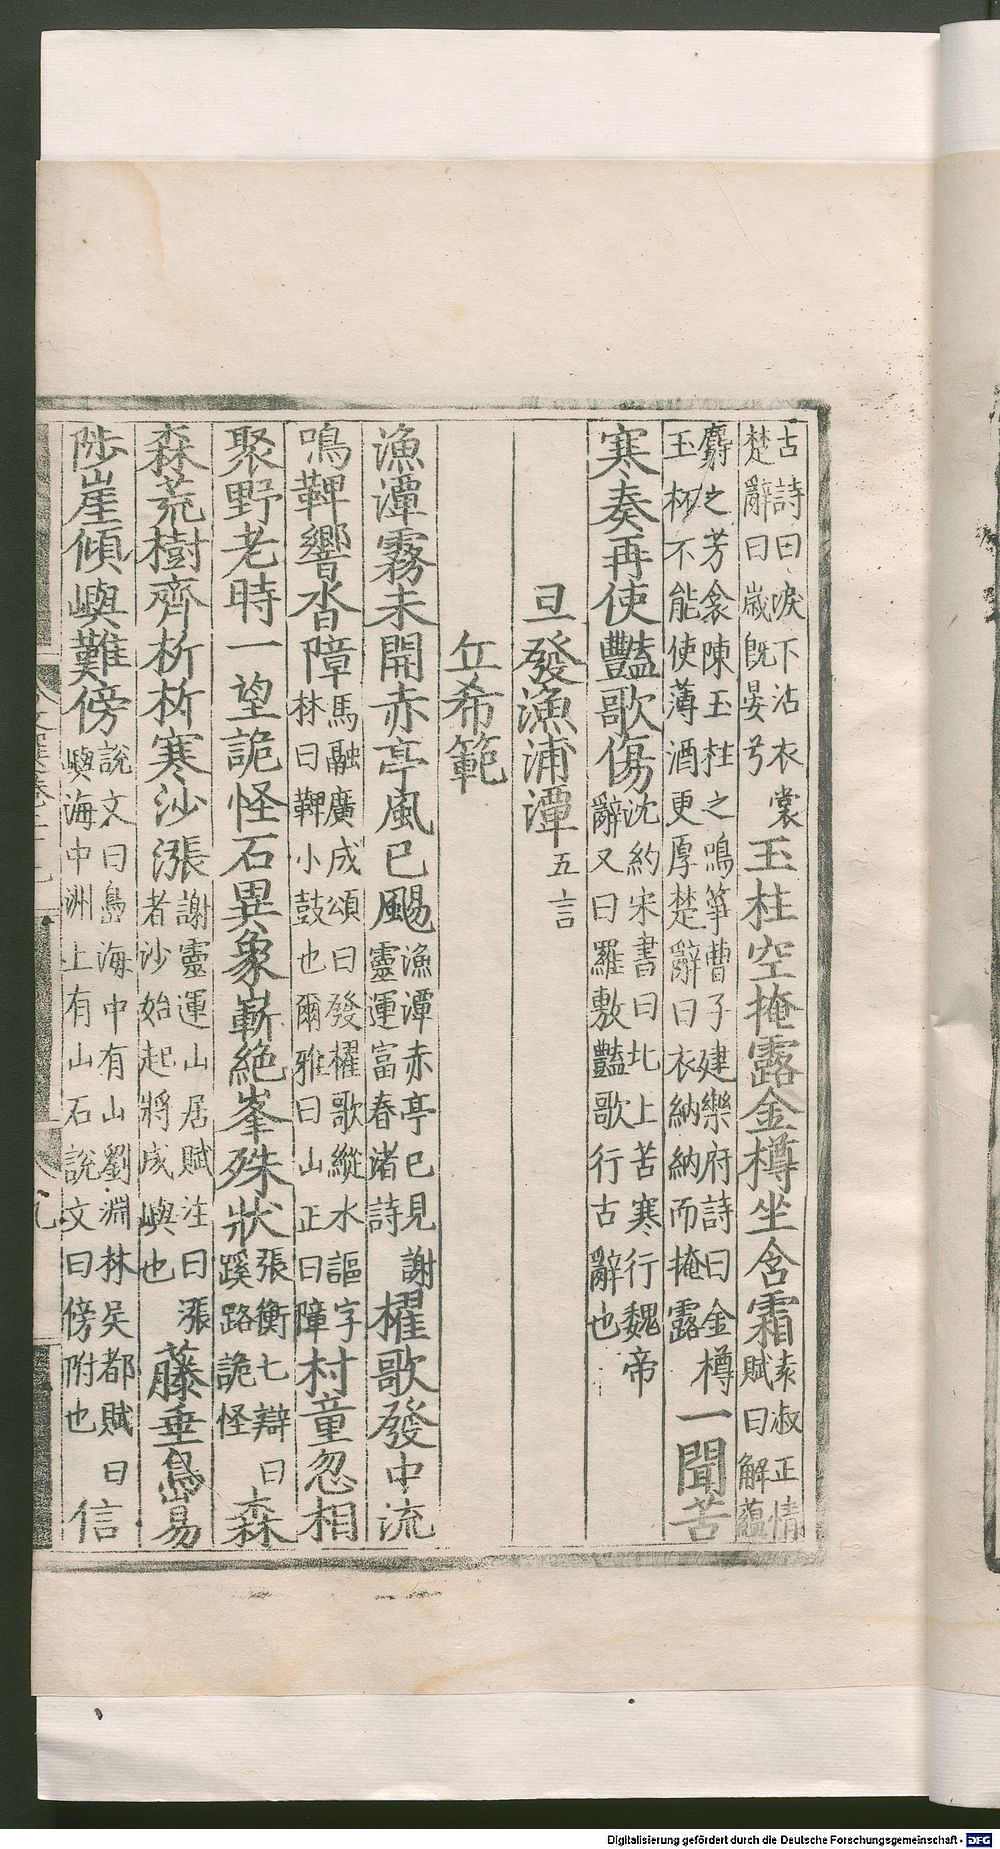 古詩曰淚下沾衣裳
楚辭曰歲旣晏兮玉柱空掩露金樽坐含霜袁淑正情
賦曰解蘊
麝之芳衾陳玉柱之鳴箏曹子建樂府詩曰金樽
玉杯不能使薄酒更厚楚辭曰衣納納而掩露一聞苦
寒奏再使豔歌傷沈約宋書曰北上苦寒行魏帝
辭又曰羅敷豔歌行古辭也
旦發漁浦潭五言
丘希範
漁潭霧未開赤亭風已颺漁潭赤亭已見謝
靈運富春渚詩櫂歌發中流
鳴鞞響沓障馬融廣成頌曰發櫂歌縱水謳字
林曰鞞小鼓也爾雅曰山正曰障村童忽相
聚野老時一望詭怪石異象嶄絶峯殊狀張衡七辯曰
蹊路詭怪森
森荒樹齊析析寒沙漲謝靈運山居賦注曰漲
者沙始起將成嶼也藤垂島易
陟崖傾嶼難傍說文曰島海中有山劉淵林吴都賦曰
嶼海中洲上有山石說文曰傍附也信
九
Digitalisierung gefördert durch die Deutsche Forschungsgemeinschaft - DFG